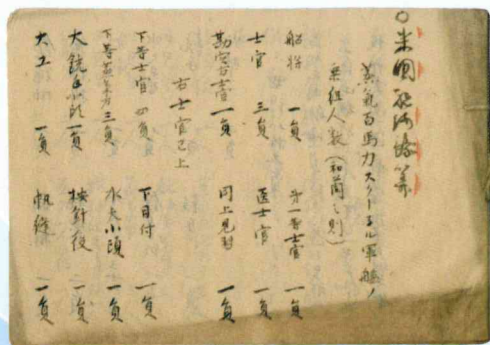 ○米国航海法算
蒸氣百馬力スクーネル軍艦ノ
乗組人数(和蘭之則)
船将 一員 第一等士官 一員
士官 三員 医士官 一員
勘定方士官 一員 同上見習 一員
右士官已上
下等士官 四員 下目付 一員
下等蒸気方 三員 水夫小頭 一員
大銃手小頭 一員 按針役 一員
大工 一員 帆縫 一員